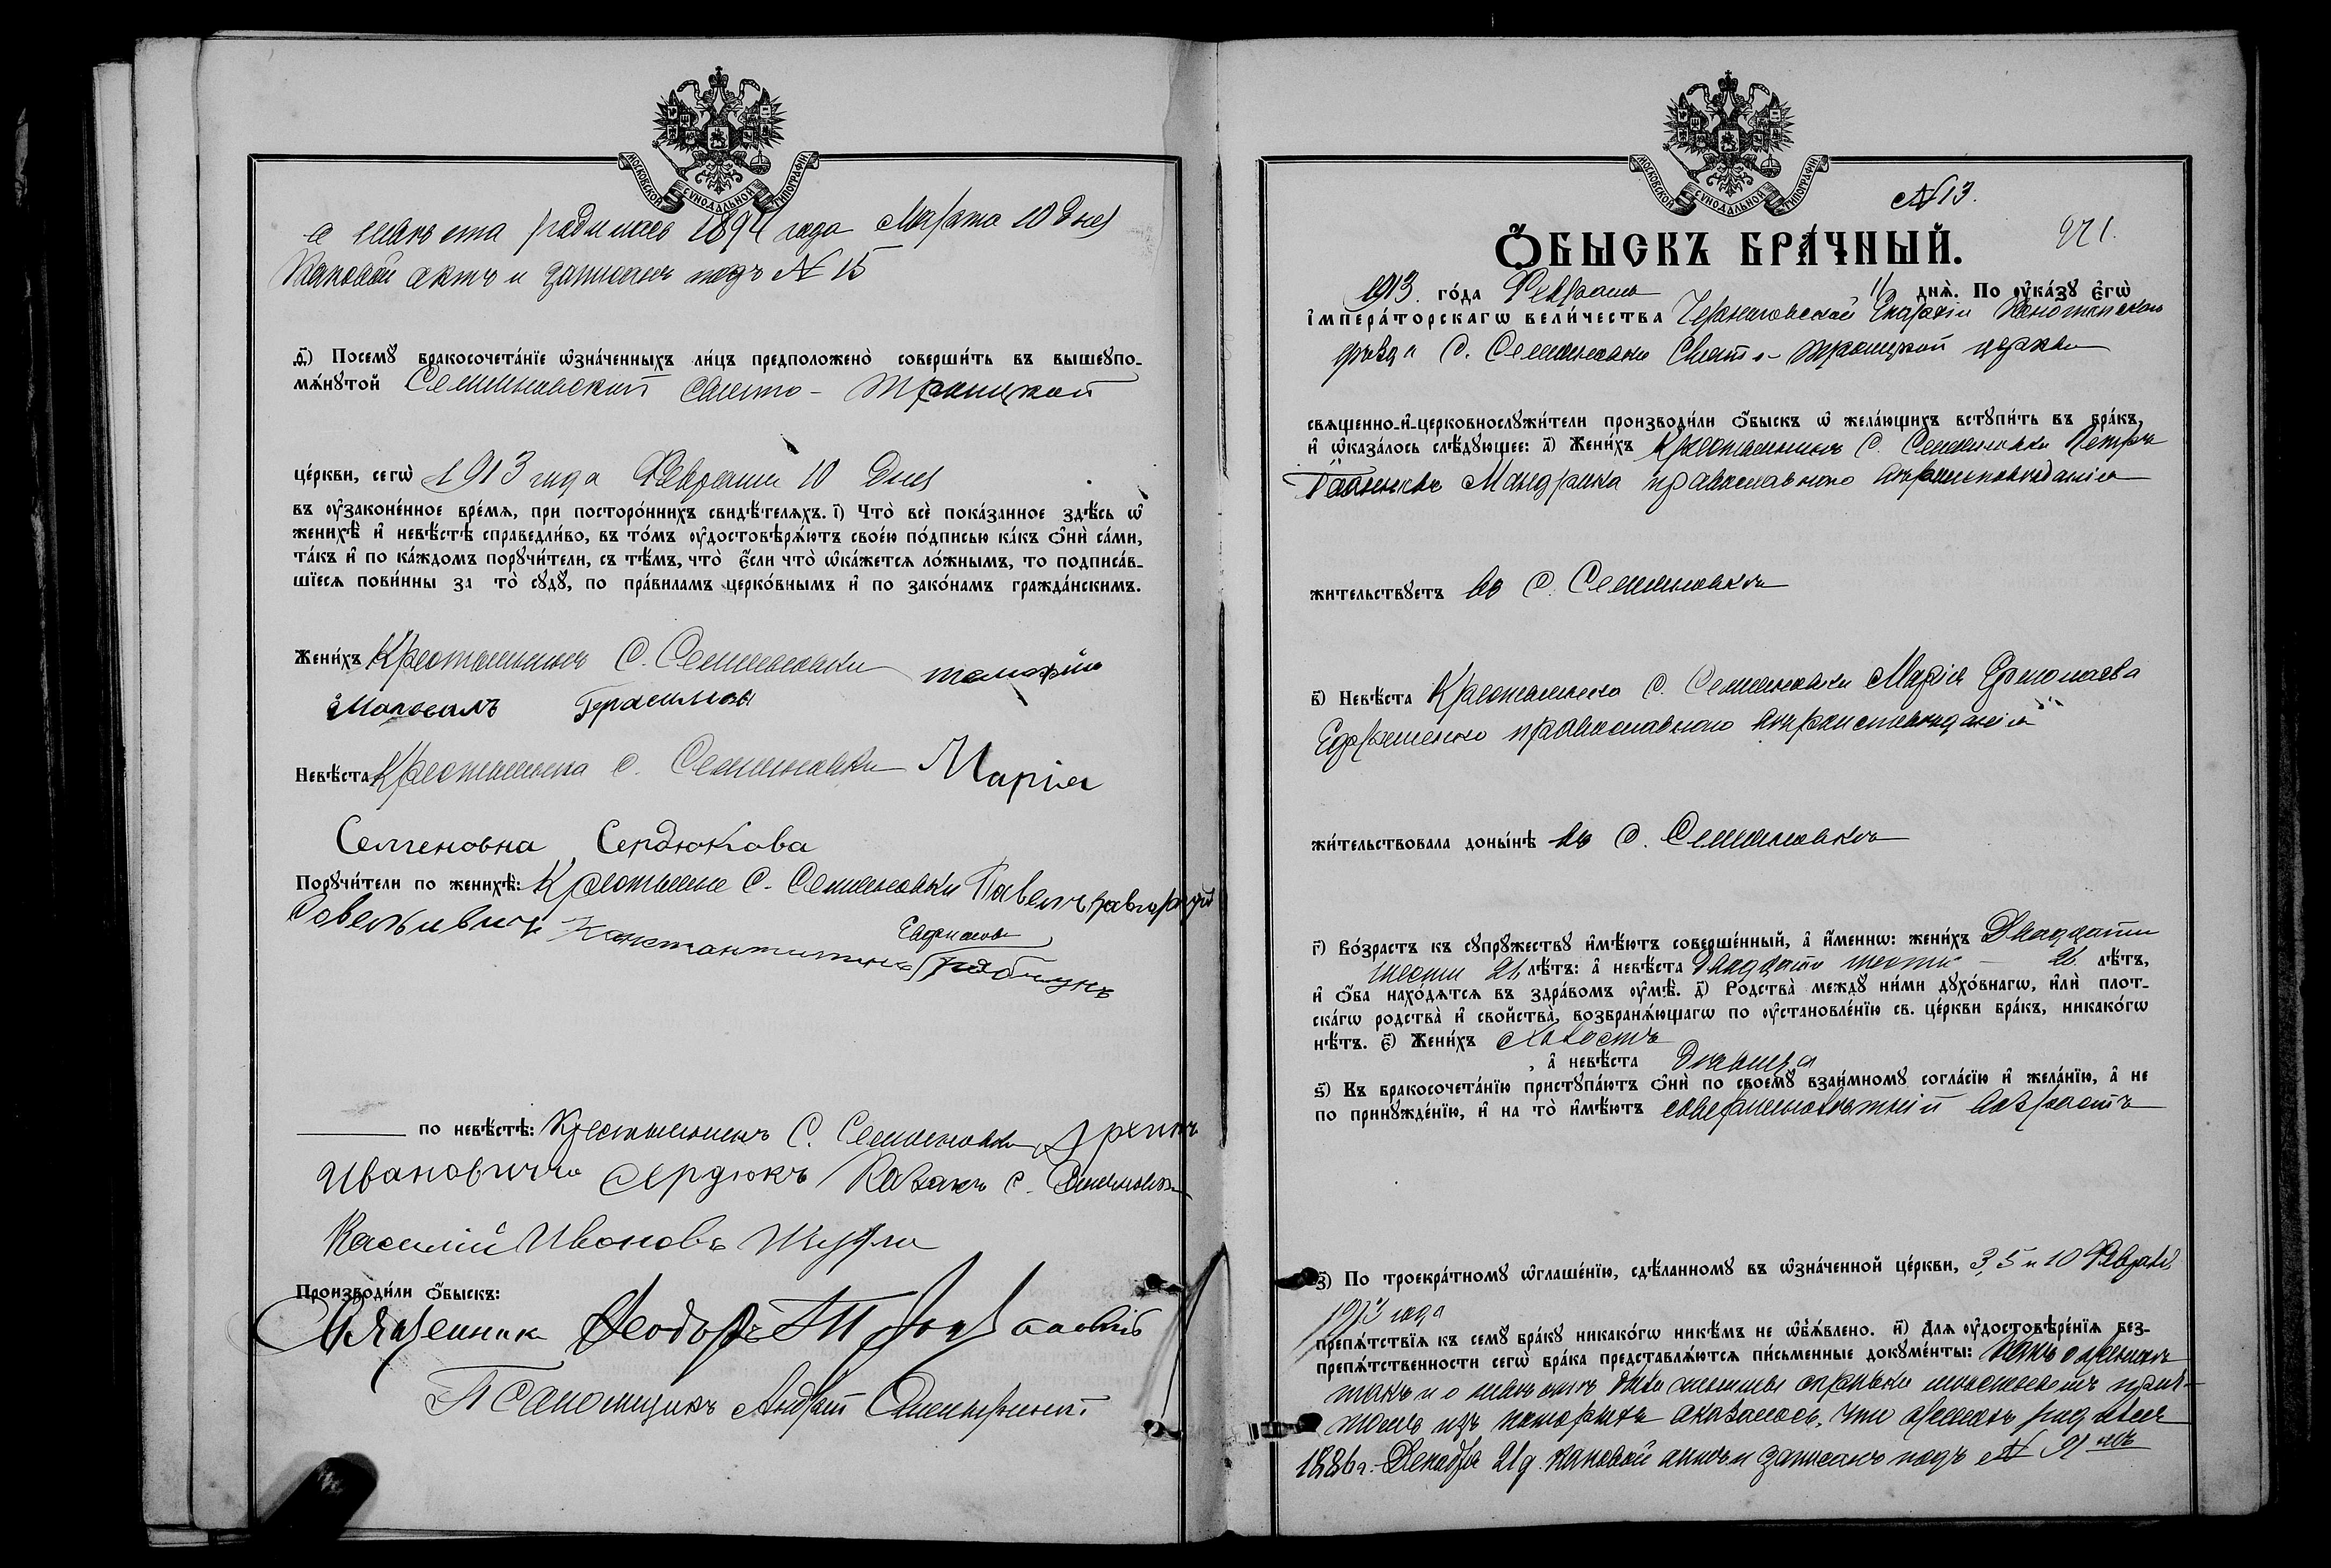 МОСКОВСКОЙ СѴНОДАЛЬНОЙ ТИПОГРАФІИ
а невѣста родилась 1894 года Марта 10 дня
каковой актъ и записанъ подъ № 15
д҃) Посемꙋ бракосочета́нїе ѡзна́ченныхъ ли́цъ предположено̀ соверши́ть въ вышеꙋпо-
мѧ́нꙋтой Семяновской Свято - Троицкой
це́ркви, сегѡ̀ 1913 года Февраля 10 дня
въ ᲂу҆законе́нное вре́мѧ, при посторо́ннихъ свидѣ́телѧхъ. і҃) Что̀ всѐ пока́занное здѣ́сь ѡ҆
женихѣ̀ и҆ невѣ́стѣ справедли́во, въ то́мъ ᲂу҆достовѣрѧ́ютъ свое́ю по́дписью ка́къ ѻ҆нѝ са́ми,
та́къ и҆ по ка́ждомъ порꙋчи́тели, съ тѣ́мъ, что̀ є҆́сли что̀ ѡ҆ка́жетсѧ ло́жнымъ, то подписа́в-
шїесѧ пови́нны за то̀ сꙋдꙋ̀, по пра́виламъ церко́внымъ и҆ по зако́намъ гражда́нскимъ.
Жени́хъ Крестьянинъ С. Семяновки
Герасимов
Невѣ́ста Крестьянка с. Семяновки Марія
Семеновна Сердюкова
Порꙋчи́тели по женихѣ̀: Крестьяне С. Семяновки Павелъ
Константинъ
по невѣ́стѣ: Крестьянинъ С. Семяновки Архипъ
Ивановичъ Сердюкъ Козакъ с. Семяновки
Василій Ивановъ Шуфла
Производи́ли ѻ҆́быскъ:
Священник Ѳеодоръ
Псаломщикъ Андрей
МОСКОВСКОЙ СѴНОДАЛЬНОЙ ТИПОГРАФІИ
№ 13.
271.
Ѻ҆́БЫСКЪ БРА́ЧНЫЙ.
1913. го́да Февраля 11 днѧ̀. По ᲂу҆ка́зꙋ є҆гѡ̀
і҆мпера́торскагѡ вели́чества Черниговской Епархіи Конотопскаго
уѣзда С. Семяновки Свято - Троицкой церкви
свѧщенно-и҆-церковнослꙋжи́тели производи́ли ѻ҆́быскъ ѡ҆ жела́ющихъ встꙋпи́ть въ бра́къ,
и҆ ѡ҆каза́лось слѣ́дꙋющее: а҃) Жени́хъ Крестьянинъ С. Семяновки Петръ
Мандрика православнаго вѣроисповѣданія
жи́тельствꙋетъ въ С. Семяновкѣ
в҃) Невѣ́ста Крестьянка С. Семяновки Марія Ермолаева
православнаго вѣроисповѣданія
жи́тельствовала доны́нѣ въ С. Семяновкѣ
г҃) Во́зрастъ къ сꙋпрꙋ́жествꙋ и҆мѣ́ютъ соверше́нный, а҆ и҆́меннѡ: жени́хъ Двадцати
шести 26 лѣ́тъ: а҆ невѣ́ста двадцати шести - 26 лѣ́тъ,
и҆ ѻ҆́ба нахо́дѧтсѧ въ здра́вомъ ᲂу҆мѣ̀. д҃) Ро́дства междꙋ̀ ни́ми дꙋхо́внагѡ, и҆лѝ плот-
ска́гѡ родства̀ и҆ сво́йства̀, возбранѧ́ющагѡ по ᲂу҆становле́нїю св. це́ркви бра́къ, никако́гѡ
нѣ́тъ. є҃) Жени́хъ Холостъ
, а҆ невѣ́ста Дѣвица
ѕ҃) Къ бракосочета́нїю пристꙋпа́ютъ ѻ҆нѝ по своемꙋ̀ взаи́мномꙋ согла́сїю и҆ жела́нїю, а҆ не
по принꙋжде́нїю, и҆ на то̀ и҆мѣ́ютъ совершеннолѣтній возрастъ
з҃) По троекра́тномꙋ ѡ҆глаше́нїю, сдѣ́ланномꙋ въ ѡ҆зна́ченной це́ркви, 3, 5 и 10 Февраля
1913 года
препѧ́тствїѧ къ семꙋ̀ бра́кꙋ никако́гѡ никѣ́мъ не ѡ҆б̾ѧ́влено. и҃) Длѧ ᲂу҆достовѣре́нїѧ без-
препѧ́тственности сегѡ̀ бра́ка представлѧ́ютсѧ пи́сьменные докꙋме́нты: какъ о женихѣ
такъ и о невѣстѣ были справки
изъ которыхъ оказалось, что женихъ родился
1886 г. Декабря 21 д. каковой актъ и записанъ подъ № 91 мъ